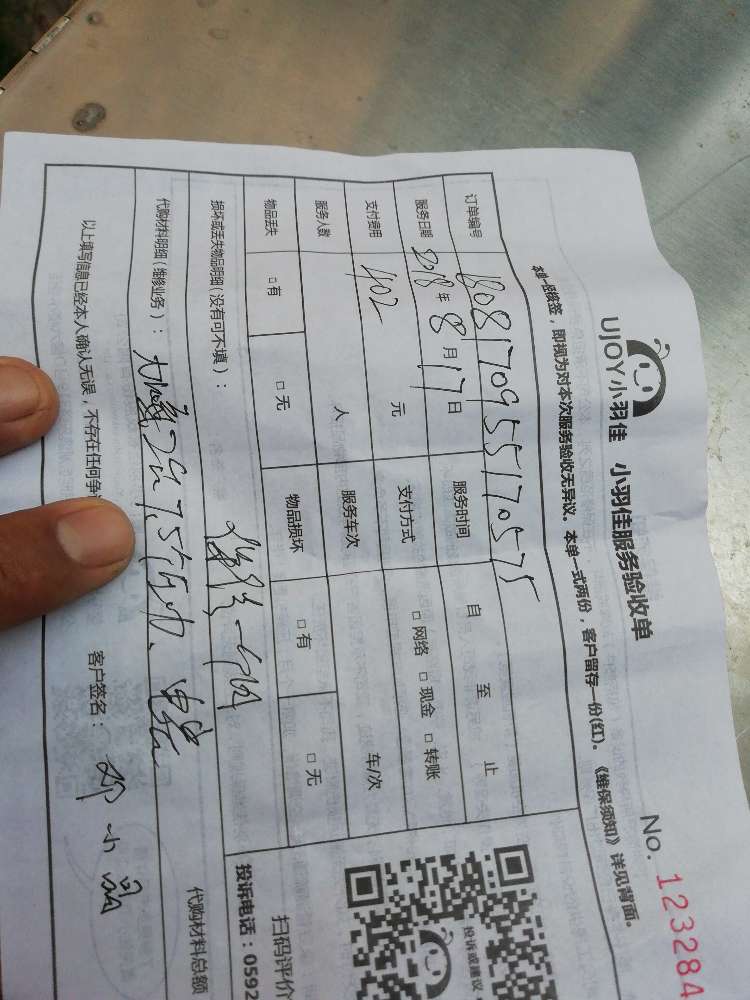 UJOY小羽佳 小羽佳服务验收单
No. 123284
本单一经核签，即视为对本次服务验收无异议。本单一式两份，客户留存一份(红)。《维保须知》详见背面。
订单编号 1808170955170575
服务日期 2018年8月17日 服务时间 自 至 止
支付费用 402 元 支付方式 □网络 □现金 □转账
服务人数 人 服务车次 车/次
物品丢失 □有 □无 物品损坏 □有 □无
损坏或丢失物品明细(没有可不填)：
代购材料明细(维修业务)：
代购材料总额
以上填写信息已经本人确认无误，不存在任何争
客户签名： 邓小
投诉或建议
扫码评价
投诉电话：0592